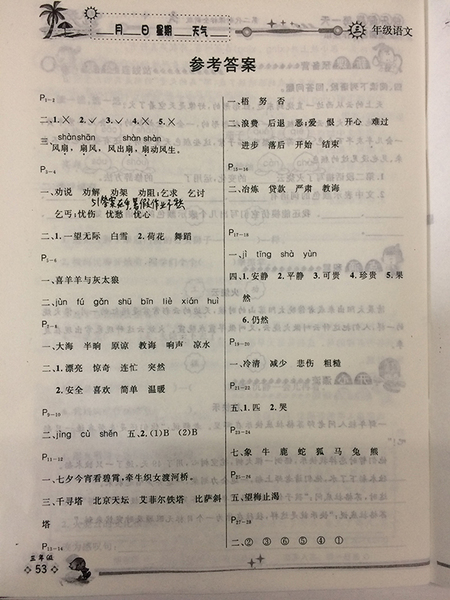 月 日 星期 天气
三年级语文
参考答案
P1-2
二、1.× 2.✓ 3.✓ 4.× 5.×
shànshān shān shàn
三、风扇，扇风，风出扇，扇动风生。
P3-4
一、劝说 劝解 劝架 劝阻；乞求 乞讨
乞丐；忧伤 忧愁 忧心
二、1.一望无际 白雪 2.荷花 舞蹈
一、喜羊羊与灰太狼
二、jùn fú gǎn shǔ bīn liè xián huì
P7-8
一、大海 半晌 原谅 教诲 响声 凉水
二、1.漂亮 惊奇 连忙 突然
2.安全 喜欢 简单 温暖
P9-10
二、jīng cù shēn 五、2.(1)B (2)B
P11-12
一、七夕今宵看碧霄，牵牛织女渡河桥。
三、千寻塔 北京天坛 艾菲尔铁塔 比萨斜
塔
P13-14
三年级
53
一、梧 努 吞
二、浪费 后退 恶；爱 恨 开心 难过
进步 落后 开始 结束
P15-16
二、冶炼 贷款 严肃 教诲
P17-18
一、jì tīng shà yùn
四、1.安静 2.平静 3.可贵 4.珍贵 5.果
然
6.仍然
P19-20
一、冷清 减少 悲伤 粗糙
P21-22
五、1.匹 2.哭
P23-24
七、象 牛 鹿 蛇 狐 马 兔 熊
P25-26
五、望梅止渴
P27-28
二、② ③ ⑥ ⑤ ④ ①